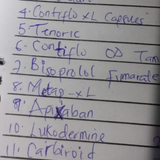 4. Contiflo XL Capsules
5. Tenoric
6. Contiflo OD Tam
7. Bisoprolol Fumarate
8. Metap-XL
9. Apixaban
10. Lukodermine
11. Carbiroid